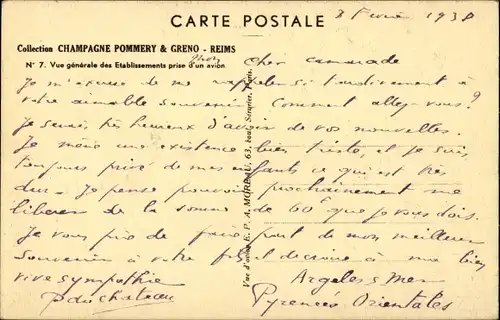 CARTE POSTALE
2 Février 1938
Collection CHAMPAGNE POMMERY & GRENO - REIMS
N° 7. Vue générale des Etablissements prise d'un avion
Mon cher camarade
Je m'excuse de me rappeler si tardivement à
votre aimable souvenir. Comment allez vous?
Je serais très heureux d'avoir de vos nouvelles.
Je mène une existence bien triste, et je suis
toujours privé de mes enfants ce qui est très
dur. Je pense pouvoir prochainement me
libérer de la somme de 60 que je vous dois.
Je vous prie de faire part de mon meilleur
souvenir à votre et de croire à ma bien
vive sympathie
Argelès s mer
Pyrénées Orientales
Vue d'avion E. P. A. MOREAU, 63, boul. Sérurier, Paris.